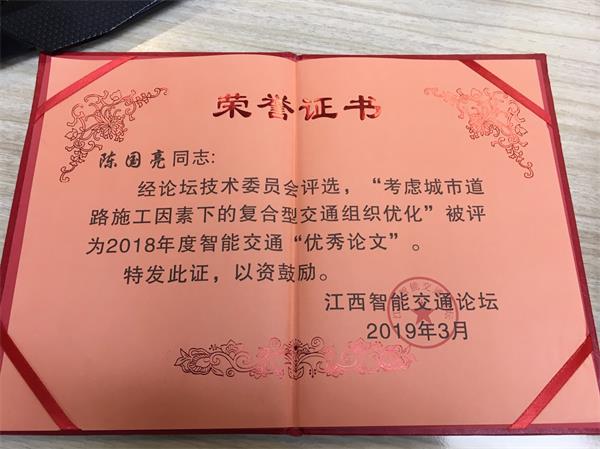 荣誉证书
陈国亮同志:
经论坛技术委员会评选，“考虑城市道
路施工因素下的复合型交通组织优化”被评
为2018年度智能交通“优秀论文”。
特发此证，以资鼓励。
江西智能交通论坛
2019年3月